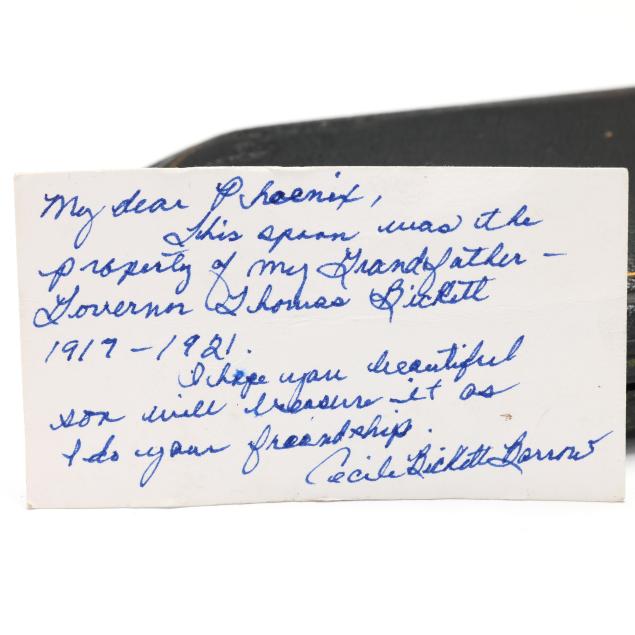 My dear Phoenix,
This spoon was the
property of my Grandfather –
Governor Thomas Bickett
1917 – 1921.
I hope your beautiful
son will treasure it as
I do your friendship.
Cecile Bickett Barrow